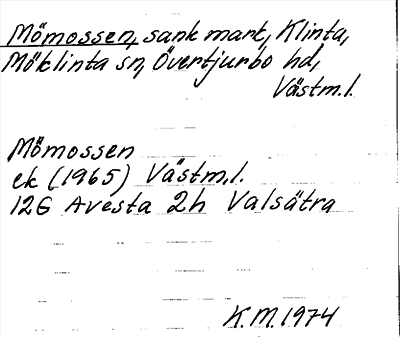 Mömossen, sank mark, Klinta,
Möklinta sn, Övertjurbo hd,
Västm.l.
Mömossen
ek (1965) Västm.l.
12G Avesta 2h Valsätra
K.M. 1974